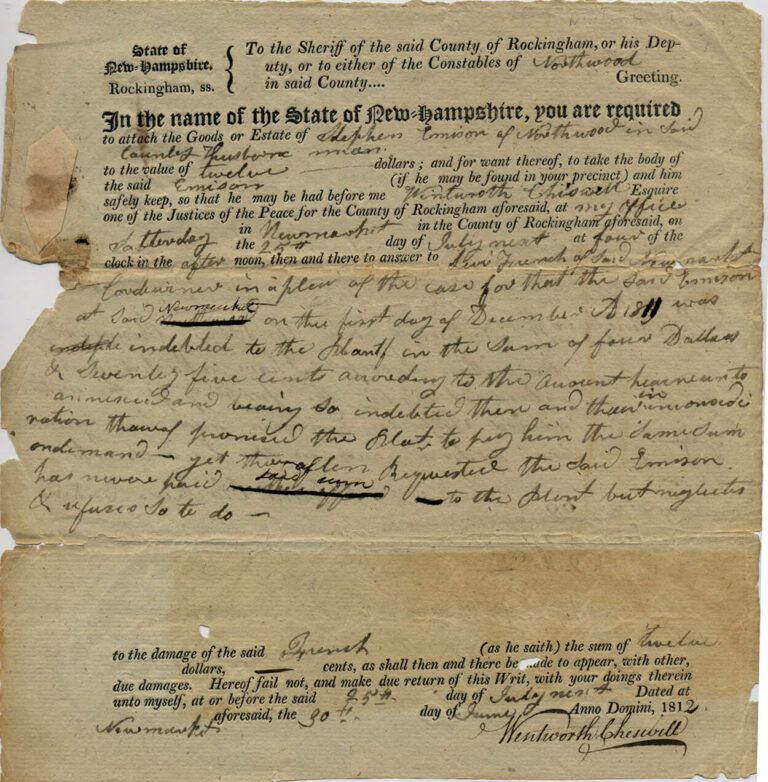 State of
New-Hampshire.
Rockingham, ss.
To the Sheriff of the said County of Rockingham, or his Dep-
uty, or to either of the Constables of Northwood
in said County.... Greeting.
In the name of the State of New-Hampshire, you are required
to attach the Goods or Estate of Stephen Emison of Northwood in Said
County
to the value of twelve dollars; and for want thereof, to take the body of
the said Emison (if he may be found in your precinct) and him
safely keep, so that he may be had before me Wintworth Chiswell Esquire
one of the Justices of the Peace for the County of Rockingham aforesaid, at my Office
in Newmarket in the County of Rockingham aforesaid, on
Satterday the 25th day of July next at four of the
clock in the after noon, then and there to answer to Levi French of Said Newmarket
Cordwner in a plea of the case for that the Said Emison
at Said Newmarket on the first day of December AD 1811 was
indebted to the Plantf in the Sum of four Dollars
& Seventy five cents according to the Acount heareunto
annexed and being So indebted then and thare in conside
ration thareof promised the Plat to pay him the Same Sum
on demand – yet tho often Requested the Said Emison
has never paid Said sum – to the Plant but neglects
& refuses So to do –
to the damage of the said French (as he saith) the sum of Twelve
dollars, – cents, as shall then and there be made to appear, with other,
due damages. Hereof fail not, and make due return of this Writ, with your doings therein
unto myself, at or before the said 25th day of July next Dated at
Newmarket aforesaid, the 30th day of June Anno Domini, 1812
Wentworth Cheswill